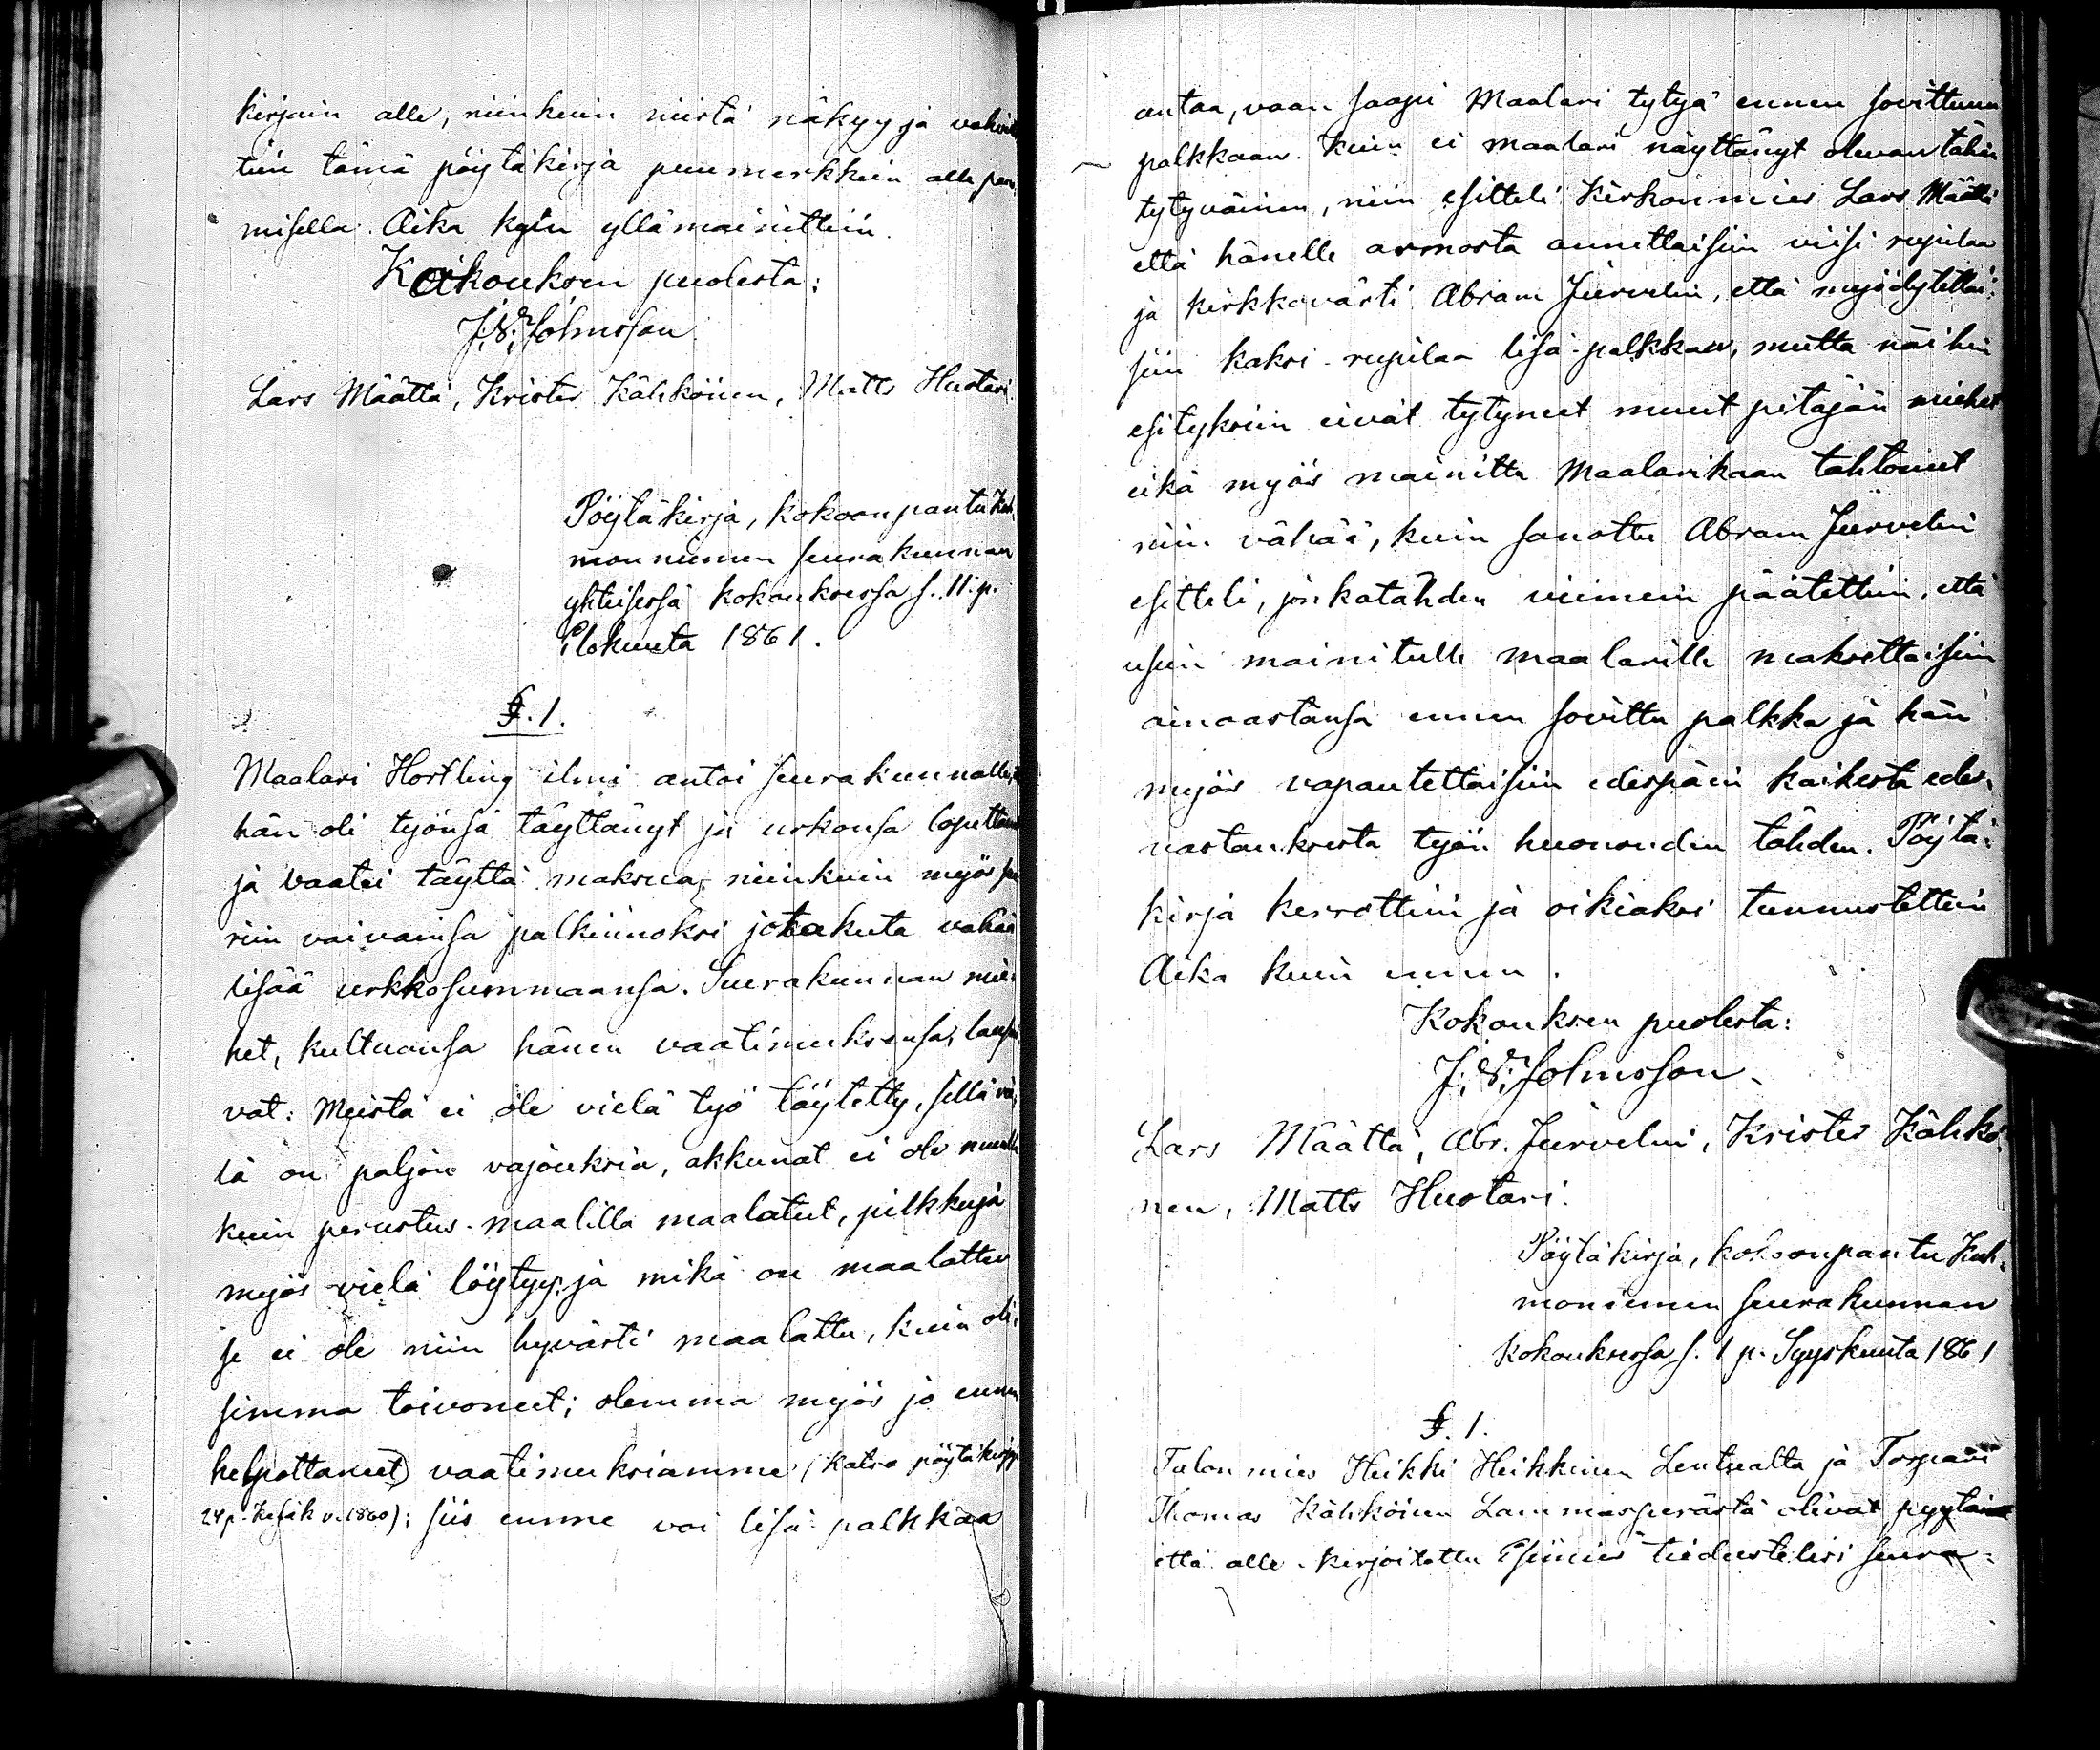 kirjain alle, niinkuin niistä näkyy ja vahvis
tiin tämä pöytäkirja puumerkkein alle pane
misella. Aika kuin yllämainittiin.
Kokouksen puolesta:
J. V. Johnsson
Lars Määttä, Krister Kähköinen, Matts Huotari.
Pöytäkirja, kokoonpantu Kuh
monniemen seurakunnan
yhteisessä kokouksessa s. 11 p.
Elokuuta 1861.
§. 1.
Maalari Hortling ilmi antoi seurakunnalle,
hän oli työnsä täyttänyt ja urkonsa lopettanut
ja vaatei täyttä maksua, niinkuin myös
riin vaivainsa palkinnoksi jotakuta vähää
lisää urkkosummaansa. Seurakunnan mie-
het, kultuansa hänen vaatimuksensa, lausu
vat: Meistä ei ole vielä työ täytetty, sillä vie
lä on paljon vajouksia, akkunat ei ole muulla
kuin perustus-maalilla maalatut, pilkkuja
myös vielä löytyy ja mikä on maalattu
se ei ole niin hyvästi maalattu, kuin oli-
simma toivoneet; olemma myös jo ennen
helpottaneet vaatimuksiamme (katso pöytäkirja
24 p. Kesäk v. 1860); siis emme voi lisä-palkkaa
antaa, vaan saapi Maalari tytyä ennen sovittuun
palkkaan. Kuin ei maalari näyttänyt olevan tähän
tytyväinen, niin esitteli Kirkonmies Lars Määttä
että hänelle armosta annettaisiin viisi ruplaa
ja kirkkovärti Abram Jurvelin, että myödytettäi-
siin kaksi ruplaa lisä-palkkaa, mutta näihin
esityksiin eivät tytyneet muut pitäjän miehet
eikä myös mainittu Maalarikaan tahtonut
niin vähää, kuin sanottu Abram Jurvelin
esitteli, jonkatähden viimein päätettiin, että
usein mainitulle maalarille maksettaisiin
ainoastansa ennen sovittu palkka ja hän
myös vapautettaisiin edespäin kaikesta edes-
vastauksesta työn huonouden tähden. Pöytä-
kirja kerrottiin ja oikiaksi tunnustettiin
Aika kuin ennen.
Kokouksen puolesta:
J. V. Johnsson.
Lars Määttä, Abr. Jurvelin, Krister Kähkö
nen, Matts Huotari.
Pöytäkirja, kokoonpantu Kuh-
moniemen seurakunnan
kokouksessa s. 1 p. Syyskuuta 1861
§. 1.
Talonmies Heikki Heikkinen Lentualta ja Torpari
Thomas Kähköinen Lammasperästä olivat pyytäneet
että alle-kirjoitettu Esimies tiedustelisi seura-